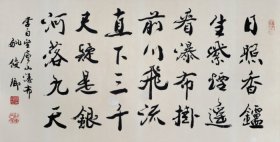 日照香鑪
生紫煙遙
看瀑布掛
前川飛流
直下三千
尺疑是銀
河落九天
李白望廬山瀑布
姚俊卿